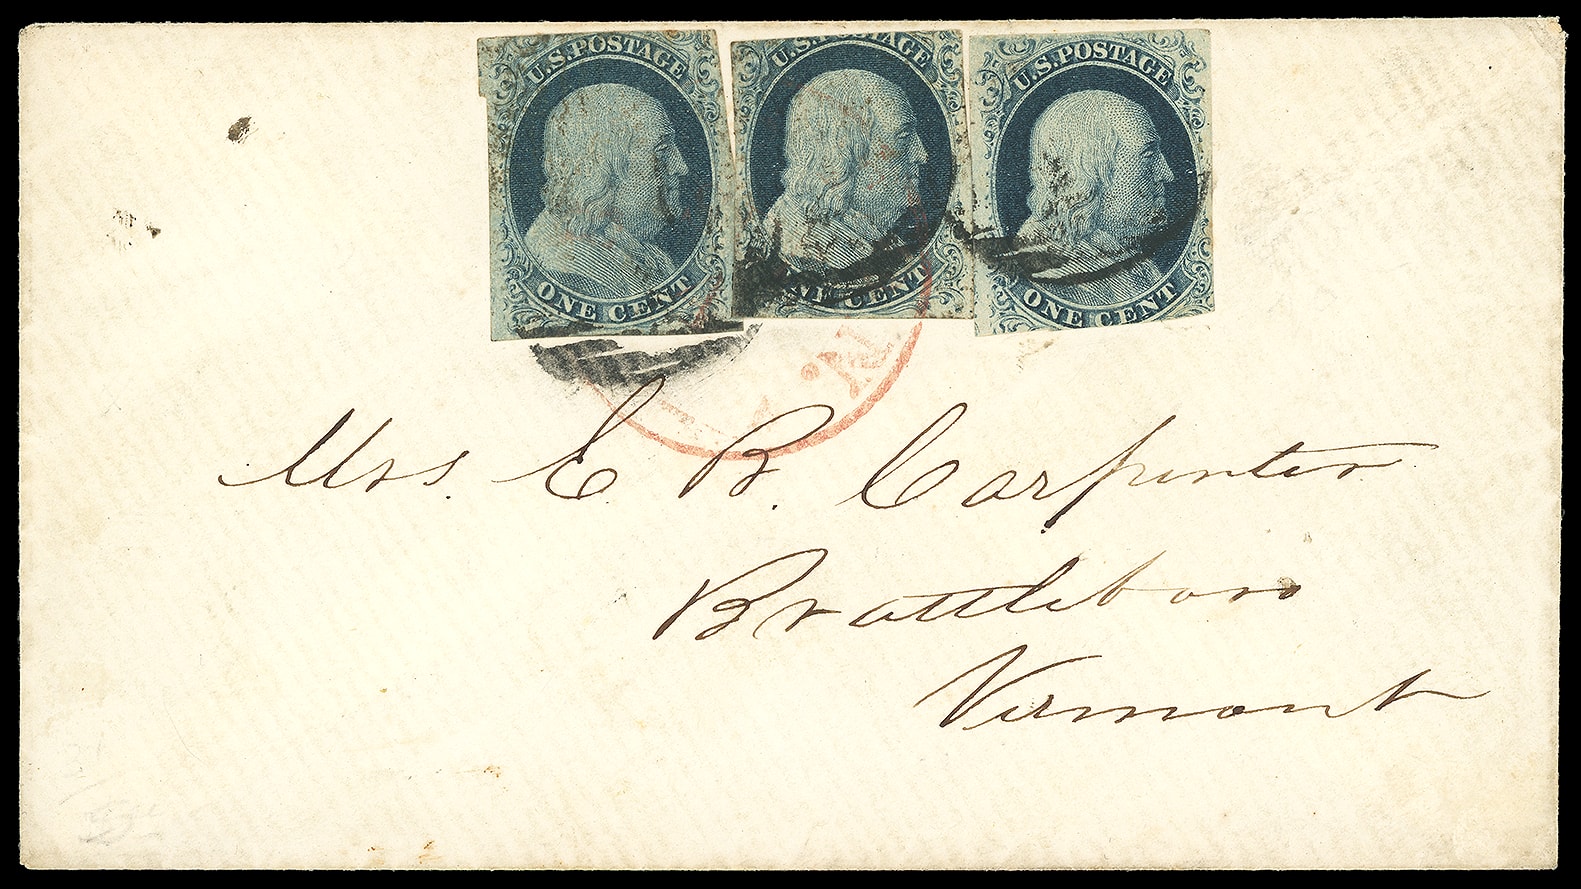 U.S. POSTAGE U.S. POSTAGE U.S. POSTAGE
ONE CENT ONE CENT ONE CENT
Mrs. E B. Carpenter
Brattleboro
Vermont